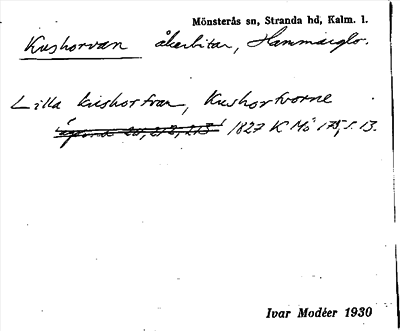 Mönsterås sn, Stranda hd, Kalm. l.
Kushorvan åkerbitar, Hammarglo.
Lilla kushortran, Kushortvorne
1827 K Mö 175, s. 13.
Ivar Modéer 1930